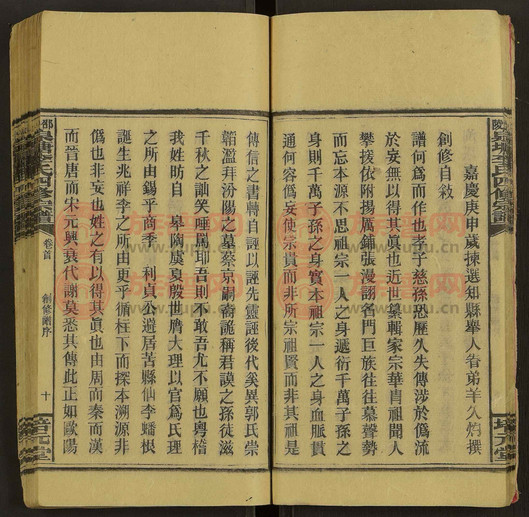 創修自敘
嘉慶庚申歲揀選知縣舉人眷弟羊久灼撰
譜何爲而作也孝子慈孫恐歷久失傳涉於僞流
於妄無以得其真也近世纂輯家宗華肖祖聞人
攀援依附揚厲鋪張漫詡名門巨族往往慕聲勢
身則千萬子孫之身實本祖宗一人之身遞衍千萬子孫之
身則不思祖宗一人之身血脈貫
通何容僞妄使宗貴而非所宗祖賢而非其祖是
傳信之書轉自誣以誣先靈誣後代矣異郭氏崇
韜濫拜汾陽之墓蔡京嗣裔詭稱君謨之孫徒滋
千秋之訕笑唾罵耶吾則不敢吾尤不願也粵稽
我姓昉自 皋陶虞夏殷世膺大理以官爲氏理
之所由錫乎商季 利貞公避居苦縣仙李蟠根
誕生兆祥李之所由更乎循枉下而探本溯源非
僞也非妄也姓之有以得其真也由周而秦而漢
而晉唐而宋元興衰代謝莫悉其傳此正如歐陽
卷首
創修譜序
十
培元堂
族譜网
www.zupu.cn